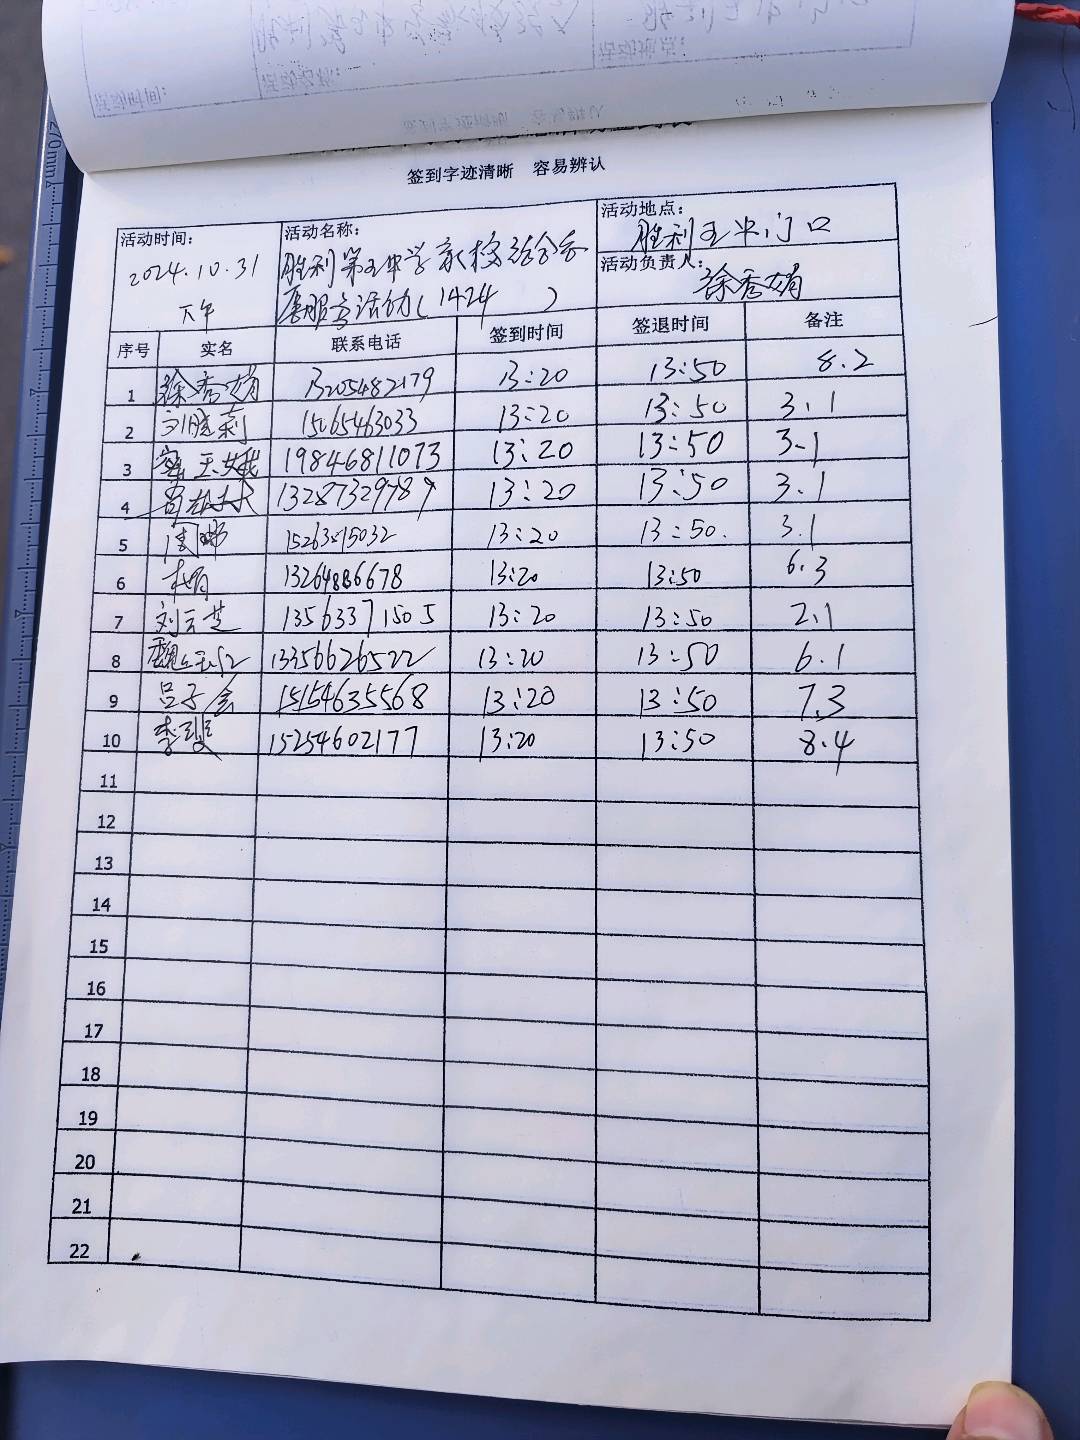 签到字迹清晰 容易辨认
活动时间: 2024.10.31 下午
活动名称: 胜利第五中学家校结合志愿服务活动(1424 )
活动地点: 胜利五中门口
活动负责人: 徐秀娟
序号 实名 联系电话 签到时间 签退时间 备注
1 徐秀娟 13205482179 13:20 13:50 8.2
2 刘胜莉 15065463033 13:20 13:50 3.1
3 19846811073 13:20 13:50 3.1
4 13287329789 13:20 13:50 3.1
5 周娜 13:20 13:50. 3.1
6 13264886678 13:20 13:50 6.3
7 刘云芝 13563371505 13:20 13:50 2.1
8 13356626522 13:20 13:50 6.1
9 吕子会 15154635568 13:20 13:50 7.3
10 李斐 15254602177 13:20 13:50 8.4
11
12
13
14
15
16
17
18
19
20
21
22
270mm